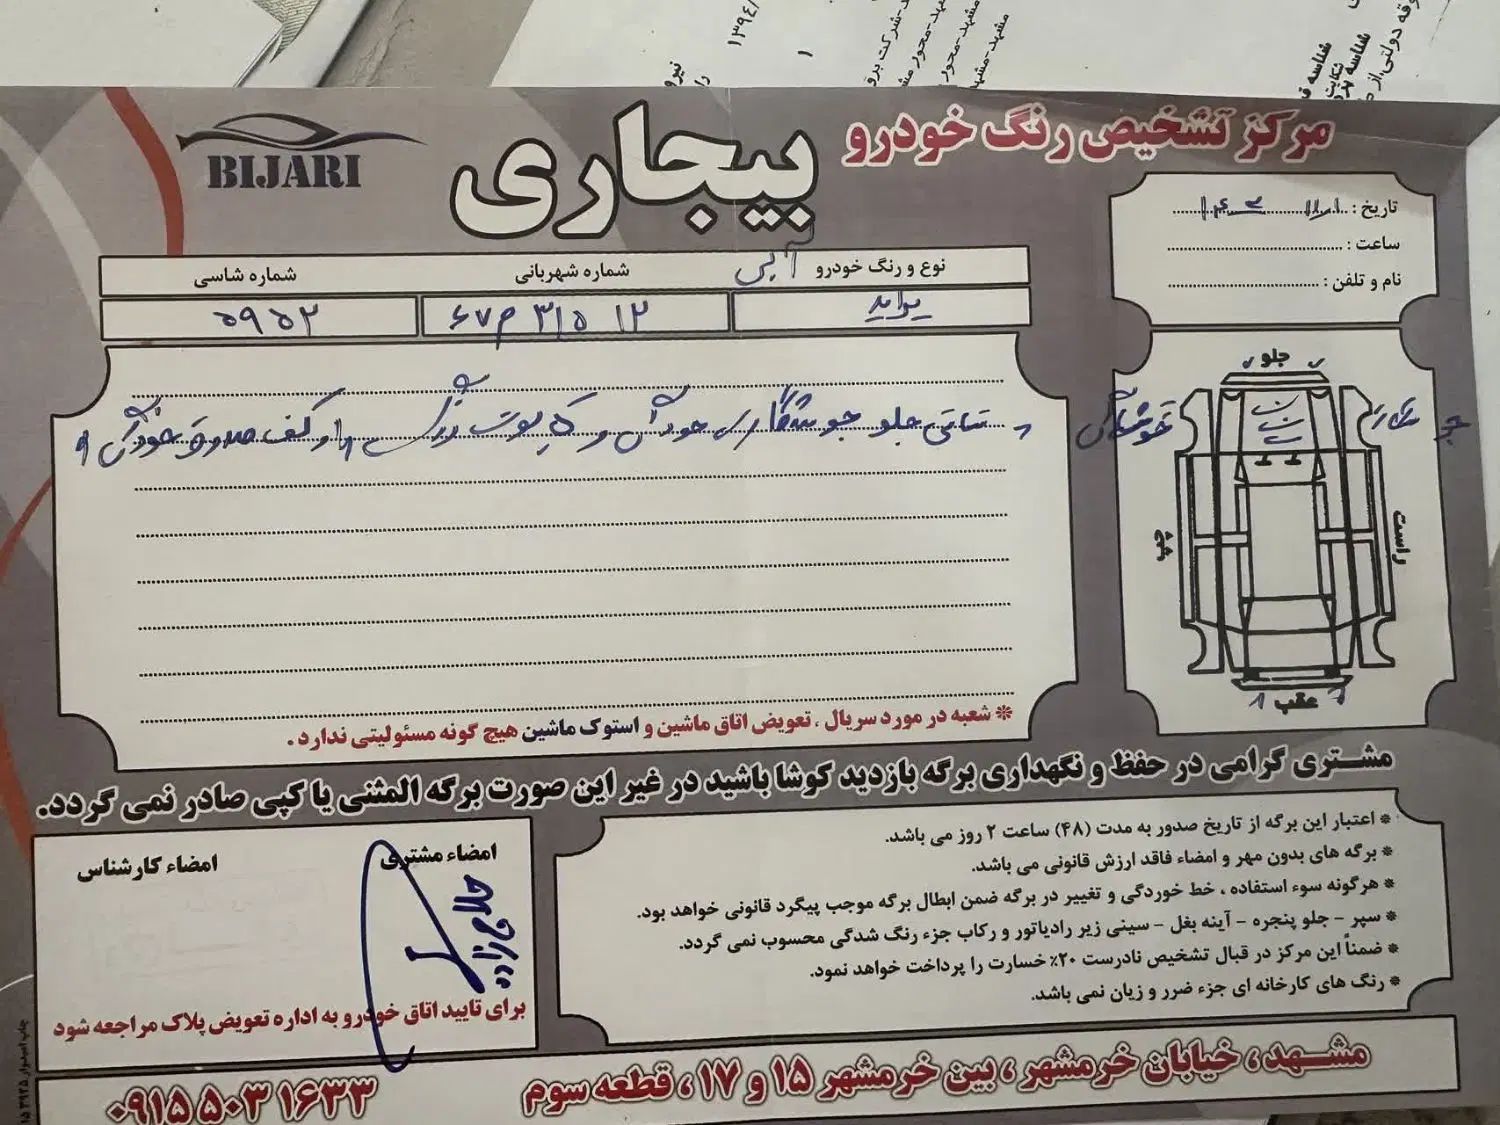 ۱۳۹۴/
۱
نیرو
شرکت برق
مشهد-محور
مشهد-محور
مشهد-مشهد
شناسه
شکایت
وقه دولتی،از
BIJARI
بیجاری
مرکز تشخیص رنگ خودرو
تاریخ :
ساعت :
نام و تلفن :
نوع و رنگ خودرو آبی
شماره شهربانی
شماره شاسی
پراید
۱۲ ۳۱۵ م ۶۷
۵۹۵۲
جلو
خودشان
و شاسی جلو جوشکاری خودش و کاپوت رنگ و کف صندوق خوردگی
چپ
راست
عقب
* شعبه در مورد سریال ، تعویض اتاق ماشین و استوک ماشین هیچ گونه مسئولیتی ندارد .
مشتری گرامی در حفظ و نگهداری برگه بازدید کوشا باشید در غیر این صورت برگه المثنی یا کپی صادر نمی گردد.
* اعتبار این برگه از تاریخ صدور به مدت (۴۸) ساعت ۲ روز می باشد.
* برگه های بدون مهر و امضاء فاقد ارزش قانونی می باشد.
* هرگونه سوء استفاده ، خط خوردگی و تغییر در برگه ضمن ابطال برگه موجب پیگرد قانونی خواهد بود.
* سپر - جلو پنجره - آینه بغل - سینی زیر رادیاتور و رکاب جزء رنگ شدگی محسوب نمی گردد.
* ضمناً این مرکز در قبال تشخیص نادرست ۲۰٪ خسارت را پرداخت خواهد نمود.
* رنگ های کارخانه ای جزء ضرر و زیان نمی باشد.
امضاء مشتری
امضاء کارشناس
برای تایید اتاق خودرو به اداره تعویض پلاک مراجعه شود
مشهد، خیابان خرمشهر ، بین خرمشهر ۱۵ و ۱۷ ، قطعه سوم
۰۹۱۵ ۵۰۳ ۱۶۳۳